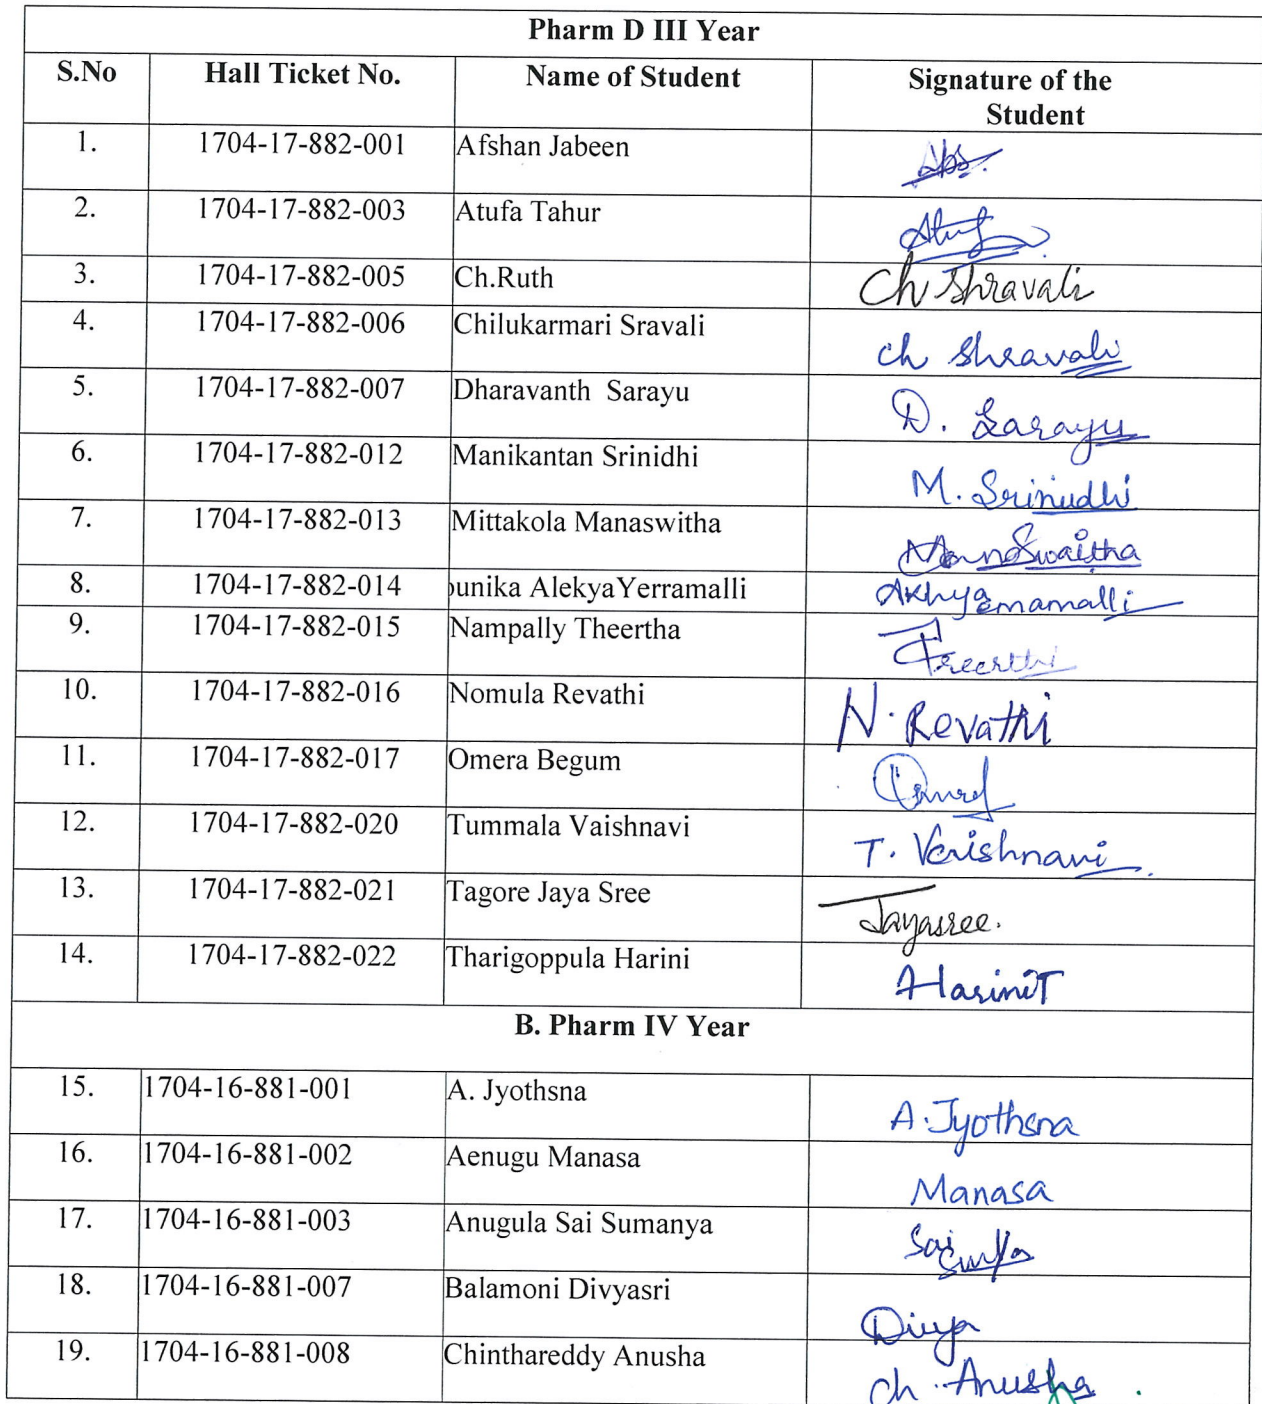 Pharm D III Year
S.No Hall Ticket No. Name of Student Signature of the
Student
1. 1704-17-882-001 Afshan Jabeen
2. 1704-17-882-003 Atufa Tahur
3. 1704-17-882-005 Ch.Ruth Ch Shravali
4. 1704-17-882-006 Chilukarmari Sravali ch Shravali
5. 1704-17-882-007 Dharavanth Sarayu D. Sarayu
6. 1704-17-882-012 Manikantan Srinidhi M. Srinidhi
7. 1704-17-882-013 Mittakola Manaswitha
8. 1704-17-882-014 ounika AlekyaYerramalli
9. 1704-17-882-015 Nampally Theertha
10. 1704-17-882-016 Nomula Revathi N. Revathi
11. 1704-17-882-017 Omera Begum
12. 1704-17-882-020 Tummala Vaishnavi T. Vaishnavi
13. 1704-17-882-021 Tagore Jaya Sree Jayasree.
14. 1704-17-882-022 Tharigoppula Harini Harini T
B. Pharm IV Year
15. 1704-16-881-001 A. Jyothsna A. Jyothsna
16. 1704-16-881-002 Aenugu Manasa Manasa
17. 1704-16-881-003 Anugula Sai Sumanya Sai
18. 1704-16-881-007 Balamoni Divyasri Divya
19. 1704-16-881-008 Chinthareddy Anusha ch. Anusha